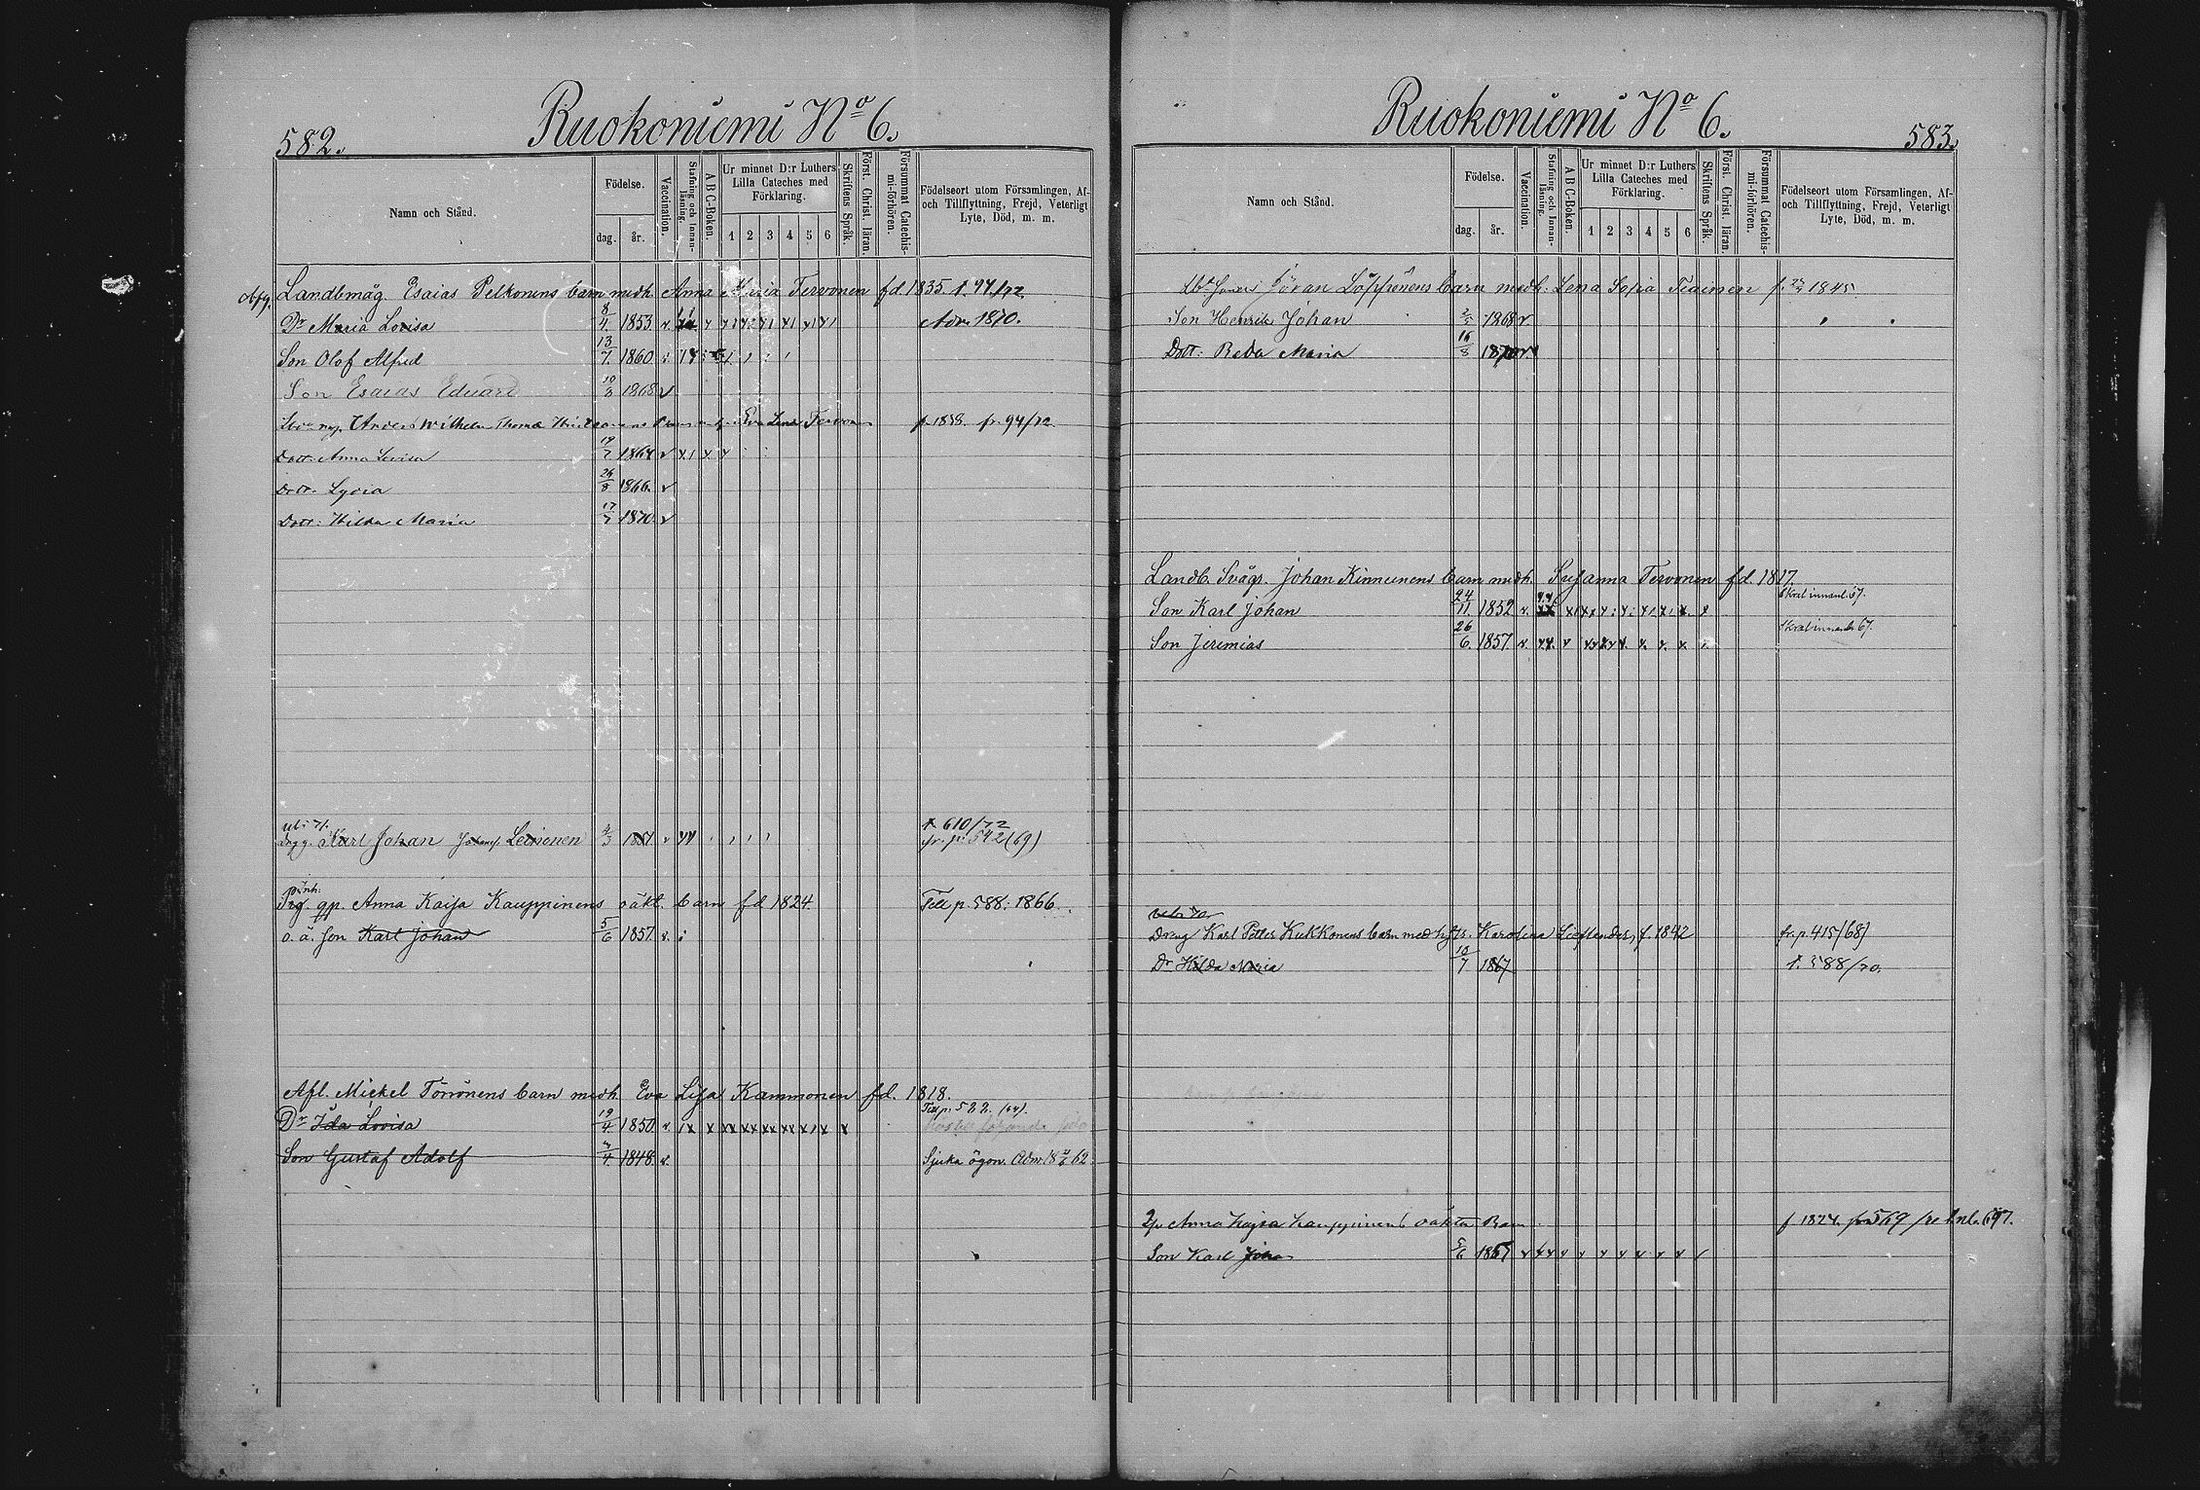 582.
Ruokoniemi No 6.
Namn och Stånd.
Födelse.
dag.
år.
Vaccination.
Stafning och Innanläsning.
A B C-Boken.
Ur minnet D:r Luthers Lilla Cateches med Förklaring.
1 2 3 4 5 6
Skriftens Språk.
Först. Christ. läran.
Försummat Catechismi-förhören.
Födelseort utom Församlingen, Af- och Tillflyttning, Frejd, Veterligt Lyte, Död, m. m.
Landbmåg. Esaias Pelkonens barn med h. Anna Maria Tervonen fd 1835
Dr Maria Lovisa 8/4 1853 Adm. 1870.
Son Olof Alfred 13/7 1860
Son Esaias Eduard 10/8 1868
Anders Wilhelm Eva Lena f. 1838. fr. 94/72
Dott. Anna Lovisa 19/7 1864
Dott. Lydia 26/8 1866
Dott: Hilda Maria 17/7 1870
Karl Johan 1851 610/72
fr. p. 542 (69)
gp. Anna Kaisa Kauppinens oäkt. barn fd 1824 Till p. 588: 1866
o. ä. son Karl Johan 5/6 1857
Afl. Mickel Törrönens barn med h. Eva Lisa Kammonen fd. 1818.
Dr Ida Lovisa 19/4 1850 Till p. 522. (64).
Son Gustaf Adolf 7/4 1848 Sjuka ögon. Adm. 62
583.
Ruokoniemi No 6.
Namn och Stånd.
Födelse.
dag.
år.
Vaccination.
Stafning och Innanläsning.
A B C-Boken.
Ur minnet D:r Luthers Lilla Cateches med Förklaring.
1 2 3 4 5 6
Skriftens Språk.
Först. Christ. läran.
Försummat Catechismi-förhören.
Födelseort utom Församlingen, Af- och Tillflyttning, Frejd, Veterligt Lyte, Död, m. m.
Göran Löppönens barn med h. Lena Sofia Tiainen 1845
Son Henrik Johan 1868
Dott: Reda Maria 16/8 1870
Landb. Svåg. Johan Kinnunens barn med h. Susanna Tervonen fd. 1817.
Son Karl Johan 24/11 1852
Son Jeremias 26/6 1857
Dreng Karl Petter Kukkonens barn med h. Karolina f. 1842 fr. p. 415 (68)
Dr Hilda Maria 10/7 1867 588/70.
Anna Kajsa Kauppinens oäkta Barn f 1824
Son Karl Johan 5/6 1857